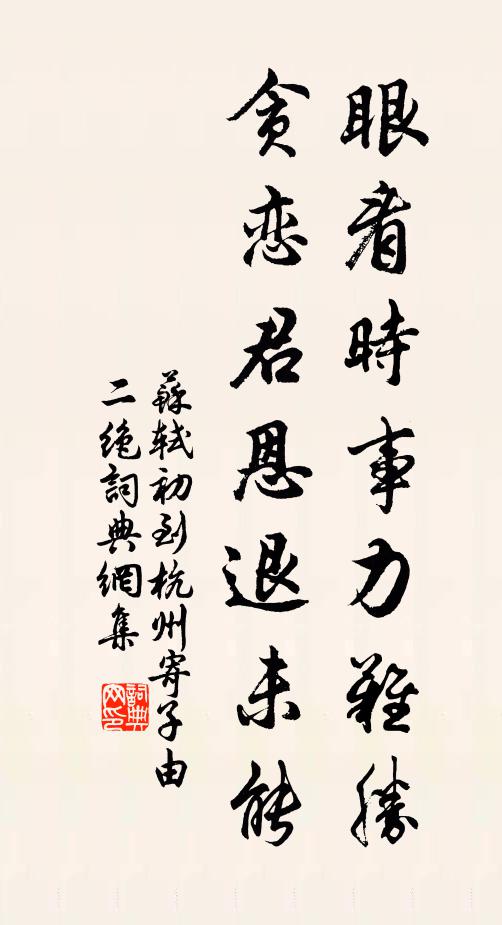 眼看時事力難勝
貪恋君恩退未能
蘇軾初到杭州寄子由
二绝詞典網集
詞典网印